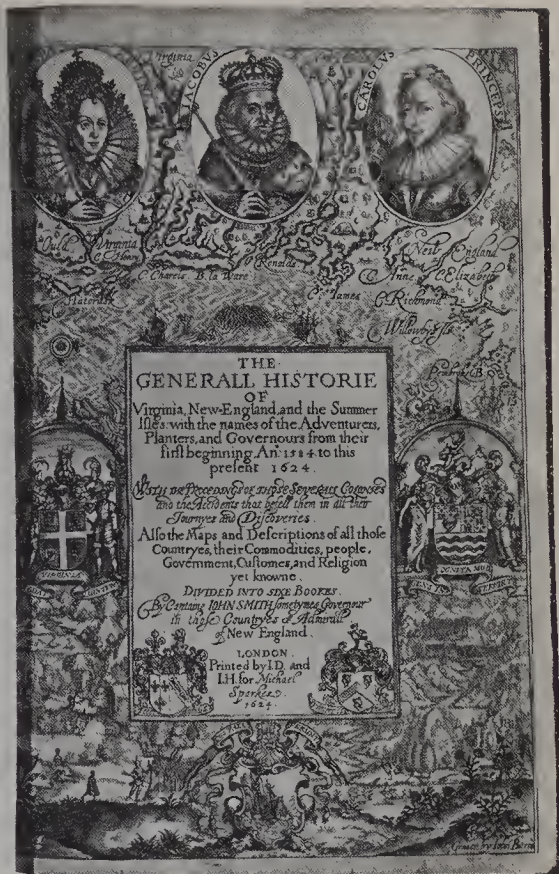 Virginia
JACOBVS
CAROLVS PRINCEPS
Ould Virginia
C. Henry
C. Charels B. la Ware
C. James
New England
C. Anne C. Elizabeth
C. Richmond
Willowby's Iles
THE
GENERALL HISTORIE
OF
Virginia, New-England, and the Summer
Isles: with the names of the Adventurers,
Planters, and Governours from their
first beginning Anº: 1584. to this
present 1624.
WITH THE PROCEDINGS OF THOSE SEVERALL COLONIES
and the Accidents that befell them in all their
Journyes and Discoveries.
Also the Maps and Descriptions of all those
Countryes, their Commodities, people,
Government, Customes, and Religion
yet knowne.
DIVIDED INTO SIXE BOOKES.
By Captaine IOHN SMITH sometymes Governour
in those Countryes & Admirall
of New England.
LONDON.
Printed by I.D. and
I.H. for Michael
Sparkes.
1624.
VIRGINIA